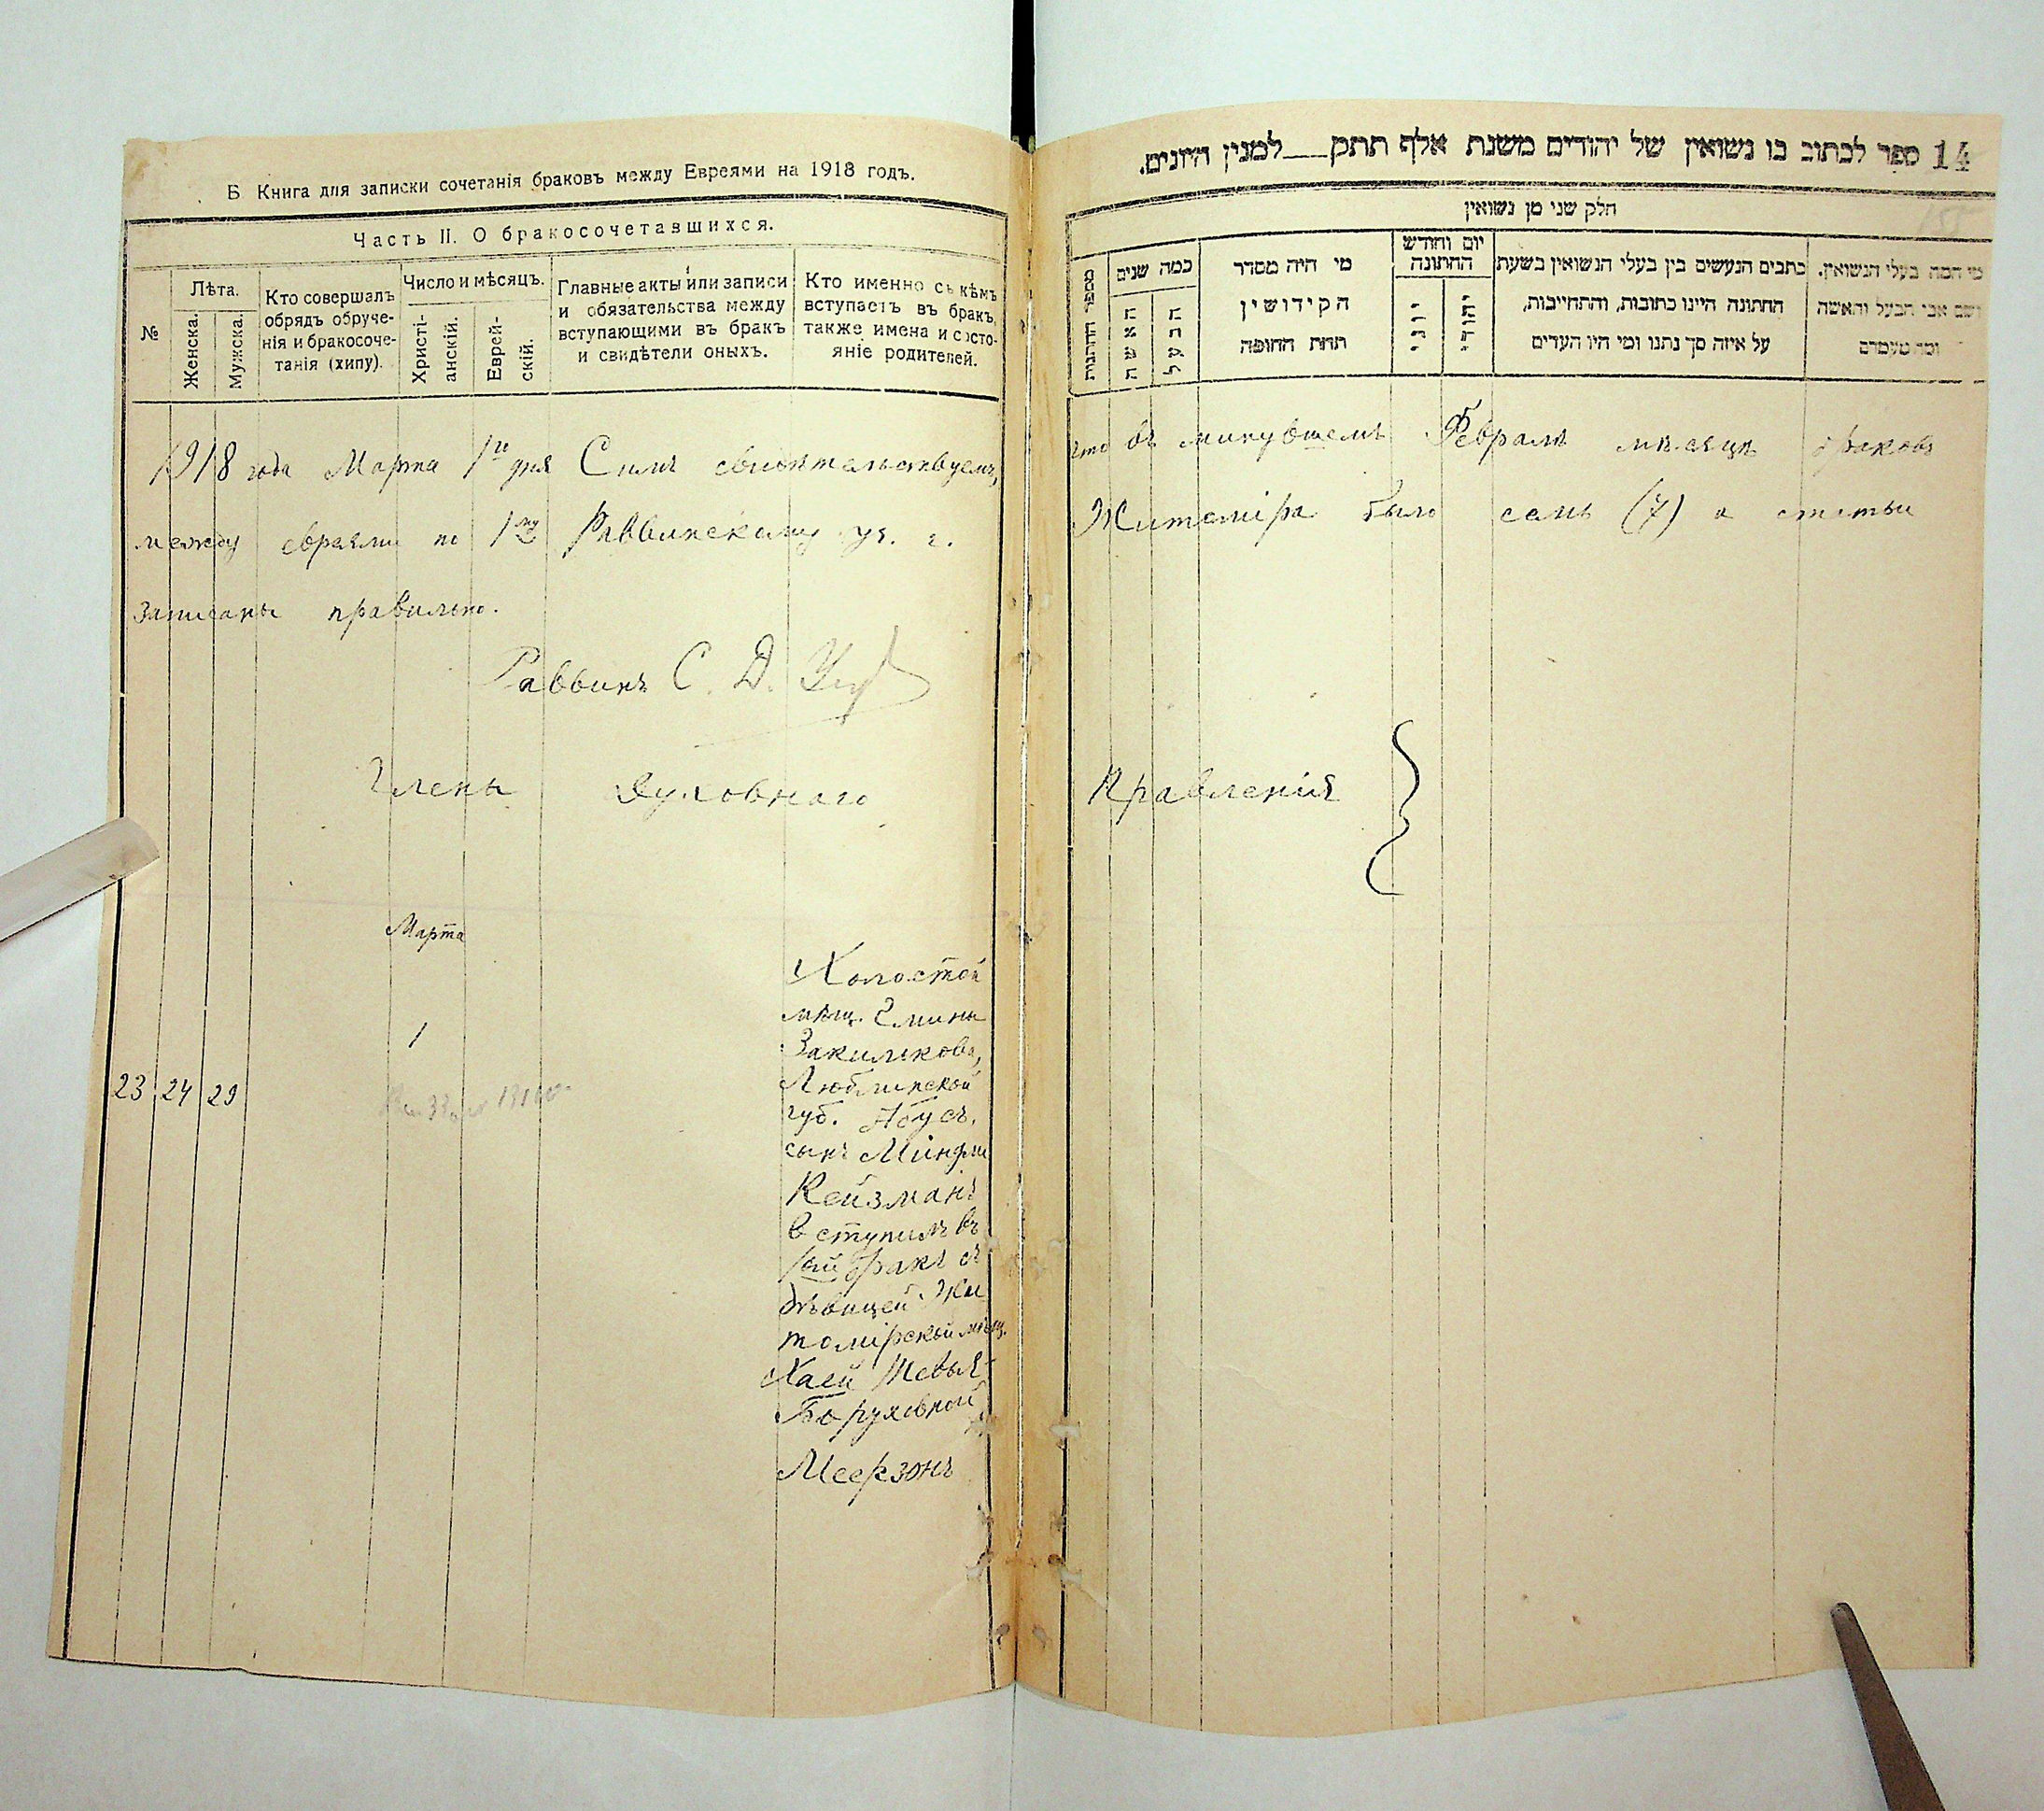 Б Книга для записки сочетанія браковъ между Евреями на 1918 годъ.
Часть II. О бракосочетавшихся.
№
Лѣта.
Женска.
Мужска.
Кто совершалъ
обрядъ обруче-
нія и бракосоче-
танія (хипу).
Число и мѣсяцъ.
Христі-
анскій.
Еврей-
скій.
Главные акты или записи
и обязательства между
вступающими въ бракъ
и свидѣтели оныхъ.
Кто именно съ кѣмъ
вступаетъ въ бракъ,
также имена и состо-
яніе родителей.
14 ספר לכתוב בו נשואין של יהודים משנת אלף תתק למנין היונים.
חלק שני מן נשואין
מספר החתונות
כמה שנים
האשה
הבעל
מי היה מסדר
הקידושין
תחת החופה
יום וחודש
החתונה
יוני
יהודי
כתבים הנעשים בין בעלי הנשואין בשעת
החתונה היינו כתובות, והתחייבות,
על איזה סך נתנו ומי היו העדים
מי המה בעלי הנשואין.
ושם אבי הבעל והאשה
ומה מעמדם
1918 года Марта 1го дня Симъ свидѣтельствуемъ, что въ минувшемъ Февралѣ мѣсяцѣ браковъ
между евреями по 1му Раввинскому уч. г. Житоміра было семь (7) и статьи
записаны правильно.
Раввинъ С. Д.
Члены Духовнаго Правленія
Марта
1
23 24 29
Холостой
мѣщ. Гмины
Закликова,
Люблинской
губ.
сынъ
Кейзманъ
вступилъ въ
1ый бракъ съ
дѣвицей Жи
томірской мѣщ.
Хаей
Боруховной
Меерзонъ